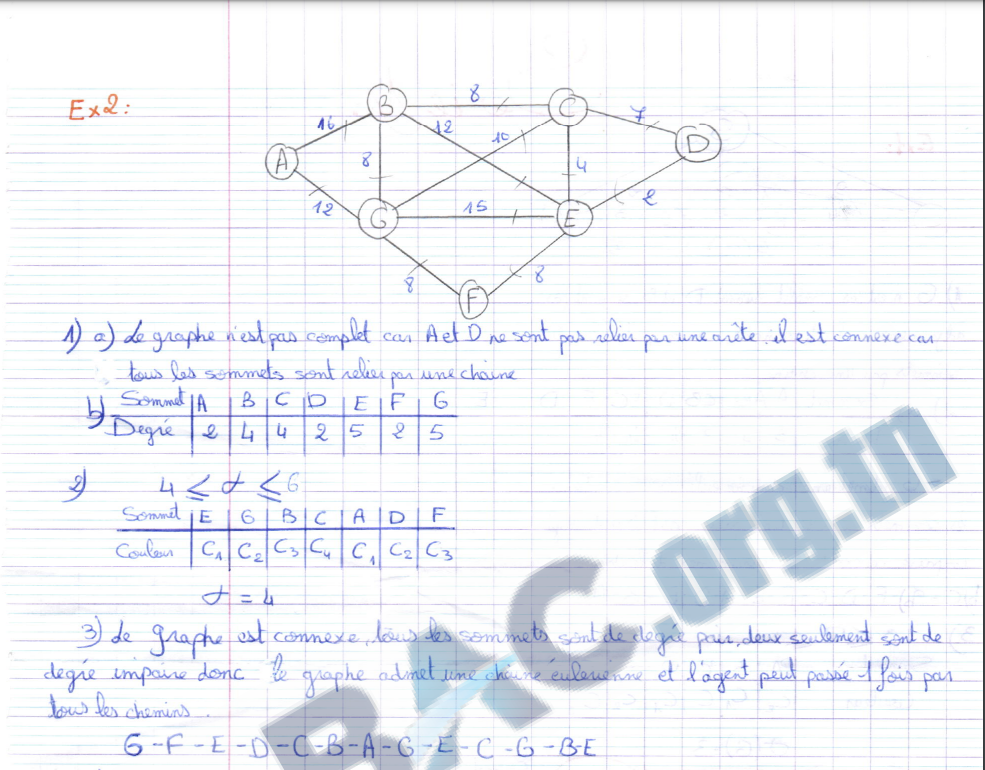 Ex2:
B 8 C 7
16 12 10 D
A 8 4
12 G 15 E 2
8 8
F
1) a) Le graphe n'est pas complet car A et D ne sont pas relier par une arête. il est connexe car
tous les sommets sont relier par une chaine
b) Sommet A B C D E F G
Degré 2 4 4 2 5 2 5
2) 4 ≤ σ ≤ 6
Sommet E G B C A D F
Couleur C1 C2 C3 C4 C1 C2 C3
σ = 4
3) Le graphe est connexe, tous les sommets sont de degré pair, deux seulement sont de
degré impaire donc le graphe admet une chaine eulerienne et l'agent peut passé 1 fois par
tous les chemins.
G-F-E-D-C-B-A-G-E-C-G-B-E
BAC.org.tn